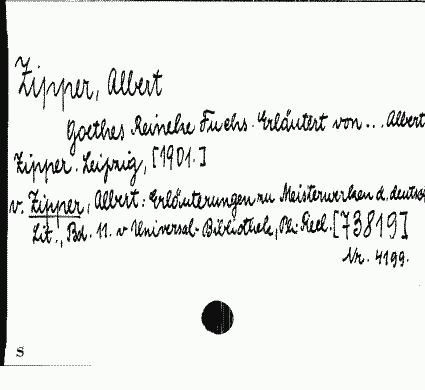 Zipper, Albert
Goethes Reineke Fuchs. Erläutert von ... Albert
Zipper. Leipzig, [1901.]
v. Zipper, Albert: Erläuterungen zu Meisterwerken d. deutsch
Lit., Bd. 11. v Universal-Bibliothek, Ph. Recl. [73819]
Nr. 4199.
s